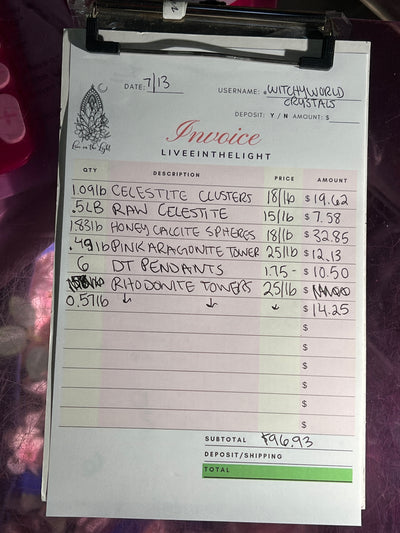 DATE: 7/13
USERNAME: @WITCHYWORLD
CRYSTALS
DEPOSIT: Y / N AMOUNT: $
Live in the Light
Invoice
LIVEEINTHELIGHT
QTY DESCRIPTION PRICE AMOUNT
1.09lb CELESTITE CLUSTERS 18/lb $ 19.62
.5LB RAW CELESTITE 15/lb $ 7.58
1.83lb HONEY CALCITE SPHERES 18/lb $ 32.85
.49lb PINK ARAGONITE TOWER 25/lb $ 12.13
6 DT PENDANTS 1.75- $ 10.50
RHODONITE TOWERS 25/lb $
0.57lb ↓ ↓ ↓ $ 14.25
$
$
$
$
$
$
SUBTOTAL $96.93
DEPOSIT/SHIPPING
TOTAL